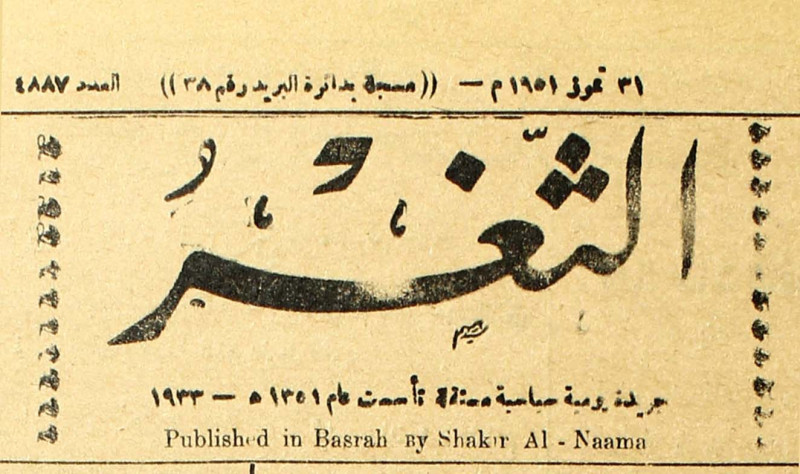 ٣١ تموز ١٩٥١ م — ((مسجلة بدائرة البريد رقم ٣٨)) العدد ٤٨٨٧
الثَّغْرُ
جريدة يومية سياسية مستقلة تأسست عام ١٣٥١ ه — ١٩٣٣
Published in Basrah By Shakir Al - Naama